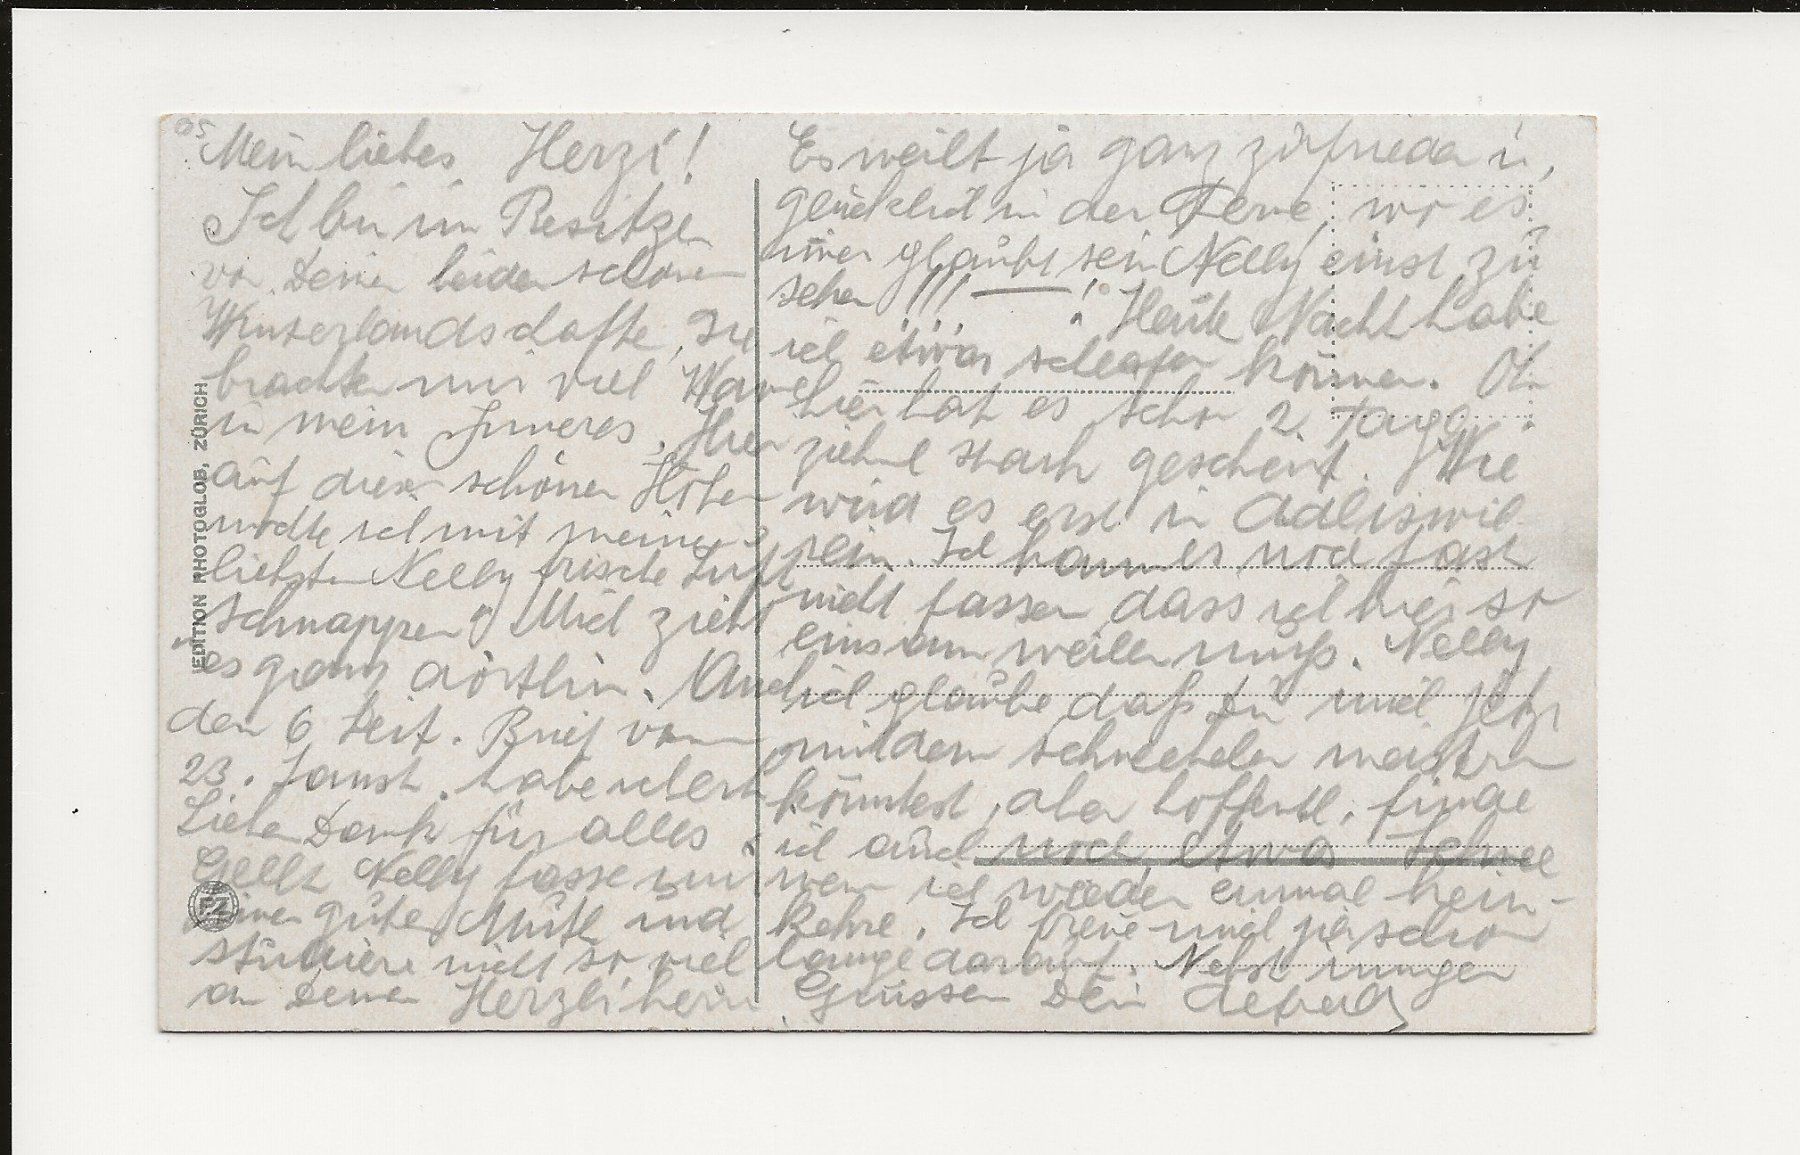 Mein liebes Herzi!
Ich bin im Besitze
von Deinen beiden schönen
Winterlandschafte, Sie
brachten mir viel
in mein Inneres. Hier
auf diesen schönen Höhen
möchte ich mit meiner
liebsten Nelly frische Luft
schnappen! Mich zieht
es ganz dörthin. Auch
den 6 Seit. Brief vom
23. habe icherh
Lieben Dank für alles.
Gellt Nelly fasse nur
immer guten Muth und
studiere nicht so viel
an Deinen Herzli herum
Es weilt ja ganz zufrieden u,
glücklich in der Ferne, wo es
immer glaubt sein Nelly einst zu
sehen !!! — ! Heute Nacht habe
ich etwas schlafen können. Oh
hier hat es schon 2 Tage
ziehml stark geschneit. Wie
wird es erst in Adliswil
sein. Ich kann es noch fast
nicht fassen dass ich hier so
einsam weilen muß. Nelly
ich glaube daß Du mich jetzt
mit dem schneeteln
könntest, aber hoffentl. finde
ich auch noch etwas Schnee
wenn ich wieder einmal heim-
kehre. Ich freue mich ja schon
lange darauf. Nebst innigen
Grüssen Dein
EDITION PHOTOGLOB, ZÜRICH
PZ